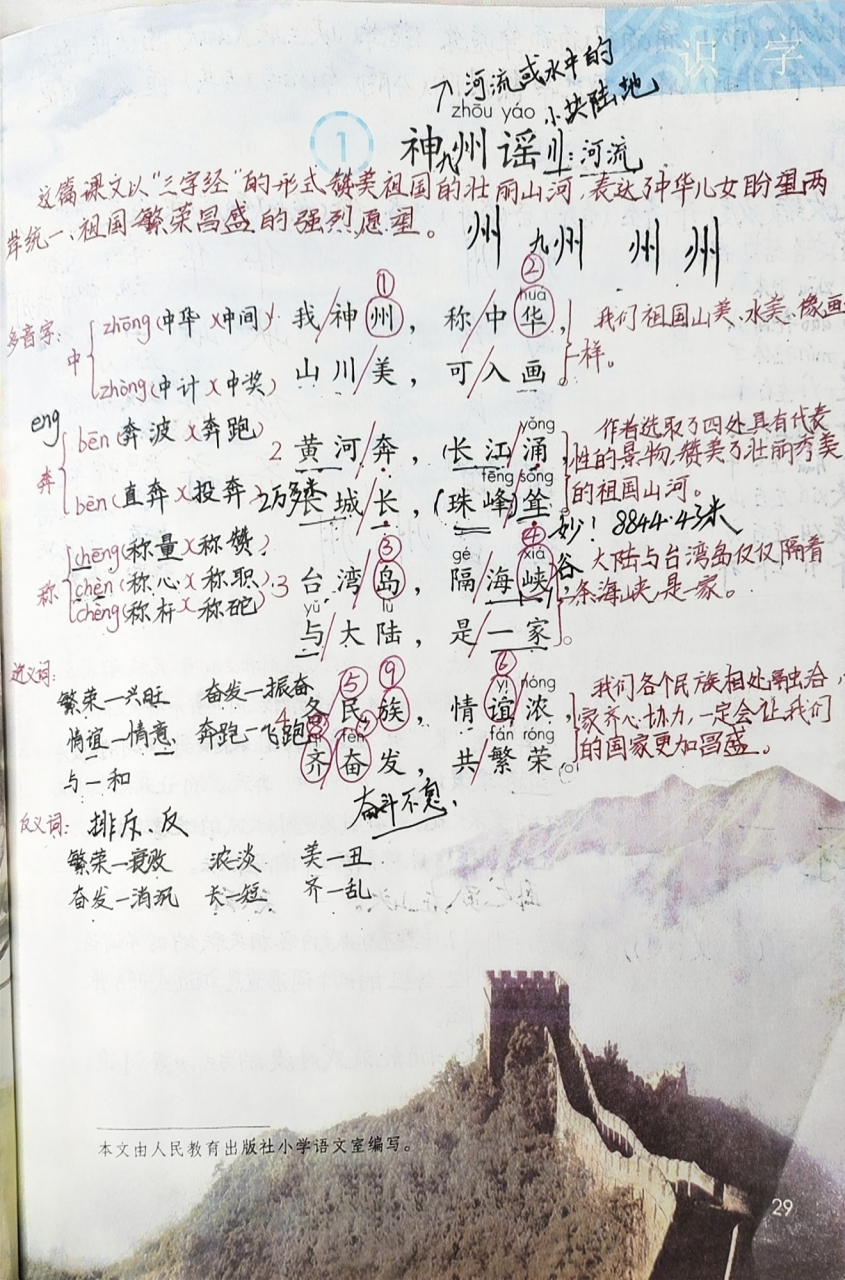 识字
↑河流或水中的
小块陆地
zhōu yáo
1 神州谣 九 川:河流
这篇课文以“三字经”的形式赞美祖国的壮丽山河,表达了中华儿女盼望两
岸统一、祖国繁荣昌盛的强烈愿望。
州 九州 州 州
① ② huá
多音字: 中 zhōng(中华 中间) 我/神州,称/中华, 我们祖国山美、水美、像画
zhòng(中计 中奖) 山川/美,可/入画。 一样。
eng
yǒng
奔 bēn(奔波 奔跑) 2 黄河/奔,长江/涌, 作者选取了四处具有代表
性的景物,赞美了壮丽秀美
fēng sǒng
bèn(直奔 投奔) 2万多里 长城/长,(珠峰)/耸。 的祖国山河。
妙! 8844.43米
③ ④ gé xiá
称 chēng(称量 称赞) 3 台湾/岛,隔/海峡, 谷 大陆与台湾岛仅仅隔着
chèn(称心 称职) 条海峡,是一家。
chèng(称杆 称砣)
yǔ lù
与/大陆,是/一家。
⑤ ⑨ ⑥ yì nóng
近义词: 4 各民/族,情/谊浓, 我们各个民族相处融洽,
繁荣—兴旺 奋发—振奋 家齐心协力,一定会让我们
情谊—情意 奔跑—飞跑 的国家更加昌盛。
fèn fán róng
齐奋/发,共/繁荣。
与—和
奋斗不息.
反义词: 排斥、反
繁荣—衰败 浓淡 美—丑
奋发—消沉 长—短 齐—乱
本文由人民教育出版社小学语文室编写。
29